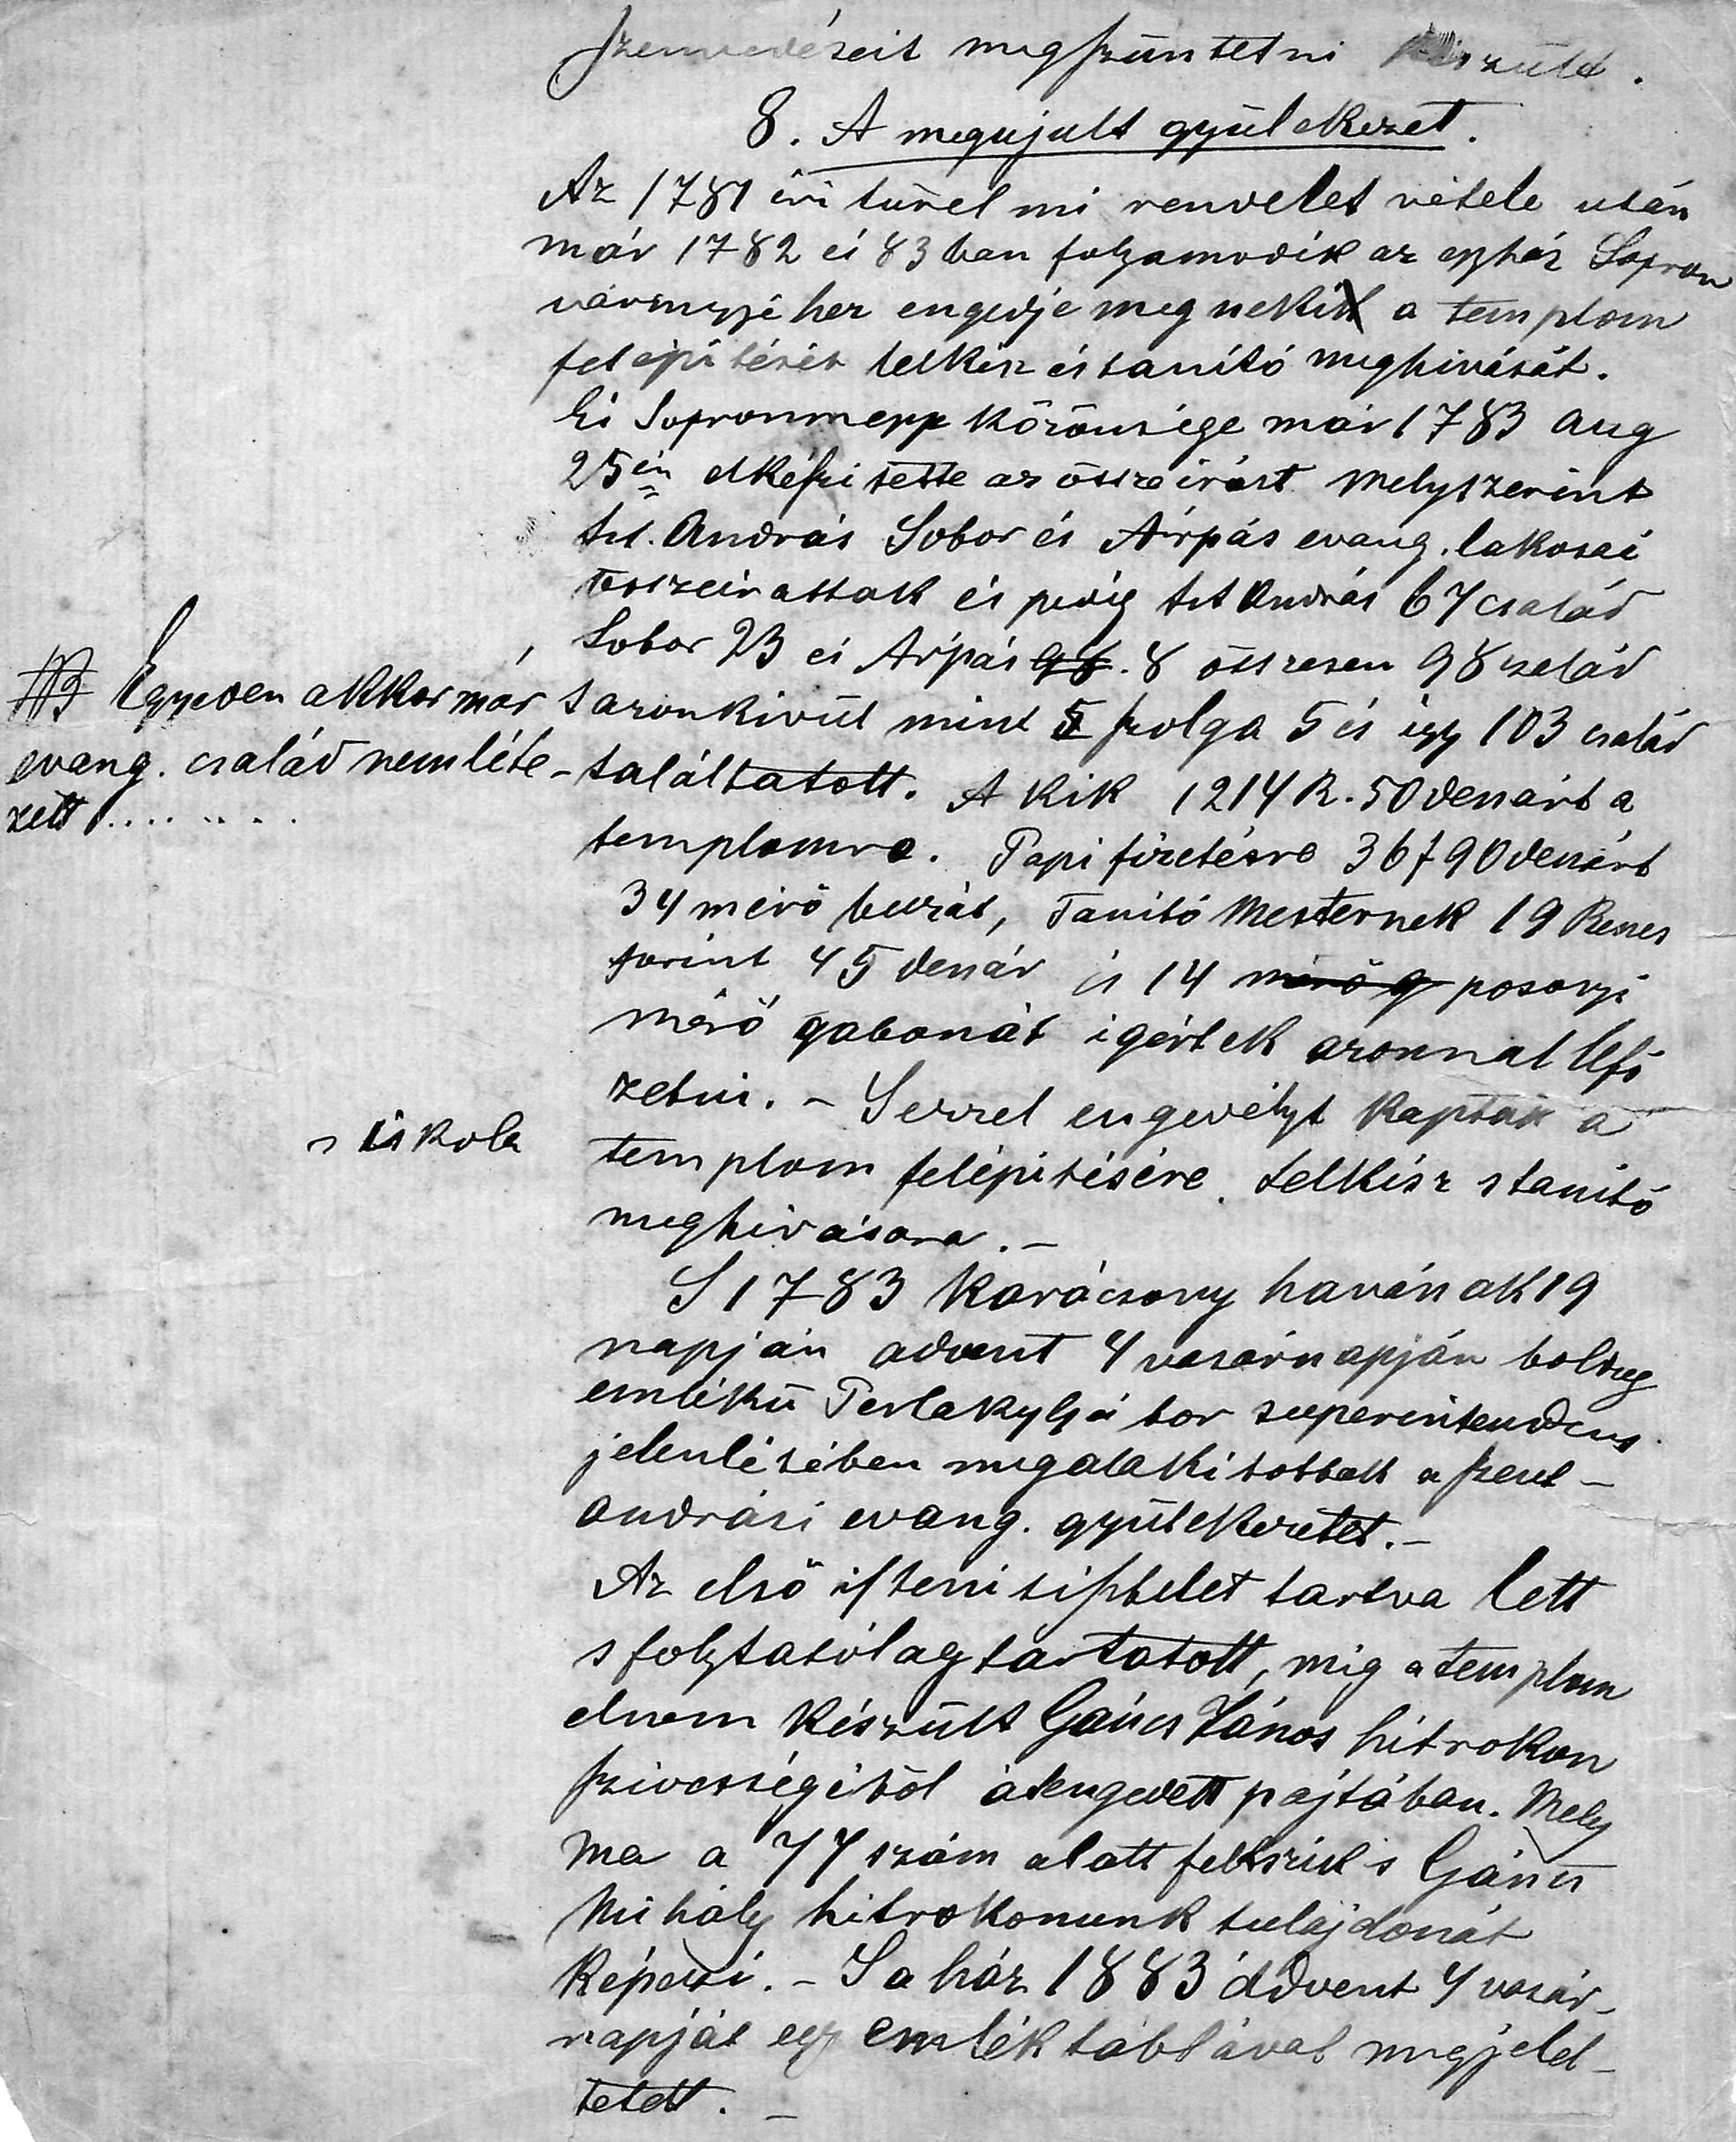 szenvedéseit megszüntetni készült.
8. A megujult gyülekezet.
Az 1781 évi türelmi rendelet vétele után
már 1782 és 83 ban folyamodik az egyház Sopron
vármegyéhez engedje meg nekik a templom
felépitését lelkész és tanító meghivását.
És Sopronmegye közönsége már 1783 aug
25én elkészitette az összeirást melyszerint
szt. András Sobor és Árpás evang. lakosai
összeirattak és pedig szt András 67 család
Sobor 23 és Árpás 98. 8 összesen 98 család
NB Egyeden akkor már
evang. család nem léte-
zett ........
s azonkivül mint 5 szolga 5 és igy 103 család
találtatott. A kik 1214 R. 50 denárt a
templomra. Papi fizetésre 36 f 90 denárt
34 mérő buzát, Tanító Mesternek 19 Renes
forint 45 denár és 14 mérő g posonyi
mérő gabonát igértek azonnal lefi
zetni. – S ezzel engedélyt kaptak a
s iskola
templom felépitésére. Lelkész s tanitó
meghivásara. –
S 1783 Karácsony havának 19
napján advent 4 vasárnapján boldog
emlékü Perlaky Gábor superintendens
jelenlétében megalakitottak a szent-
andrási evang. gyülekezetet. –
Az első isteni tisztelet tartva lett
s folytatólag tartatott, mig a templom
elnem készült Gáncs János hitrokon
szivességéből átengedett pajtában. Mely
ma a 77 szám alatt fekszik s Gáncs
Mihály hitrokonunk tulajdonát
képezi. – S a ház 1883 ádvent 4 vasár-
napját egy emlék táblával megjelel-
tetett. –